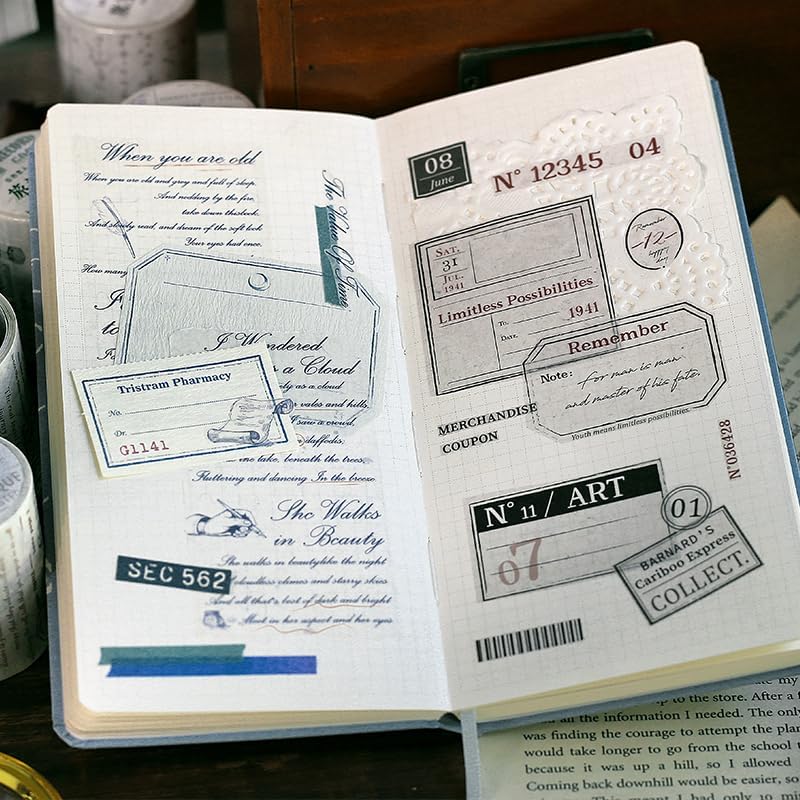 When you are old
When you are old and grey and full of sleep,
And nodding by the fire,
take down thisbook.
And slowly read, and dream of the soft look
Your eyes had once.
How many
The Value Of Time
I Wondered
as a Cloud
ly as a cloud
vales and hills,
I saw a crowd,
daffodils.
the lake, beneath the trees,
Fluttering and dancing In the breeze
Tristram Pharmacy
No.
Dr.
G1141
She Walks
in Beauty
She walks in beautylike the night
cloudless climes and starry skies
And all that's best of dark and bright
Meet in her aspect and her eyes
SEC 562
08
June
N° 12345 04
Remember
-12-
SAT.
31
JUL.
1941
Limitless Possibilities
1941
To.
DATE.
Remember
Note:
For man is man
and master of his fate.
Youth means limitless possibilities.
MERCHANDISE
COUPON
N°036428
N° 11 / ART
07
01
BARNARD'S
Cariboo Express
COLLECT.
to the store. After a f
all the information I needed. The only
was finding the courage to attempt the plan
would take longer to go from the school
because it was up a hill, so I allowed
Coming back downhill would be easier, so
This meant I had only 10 min